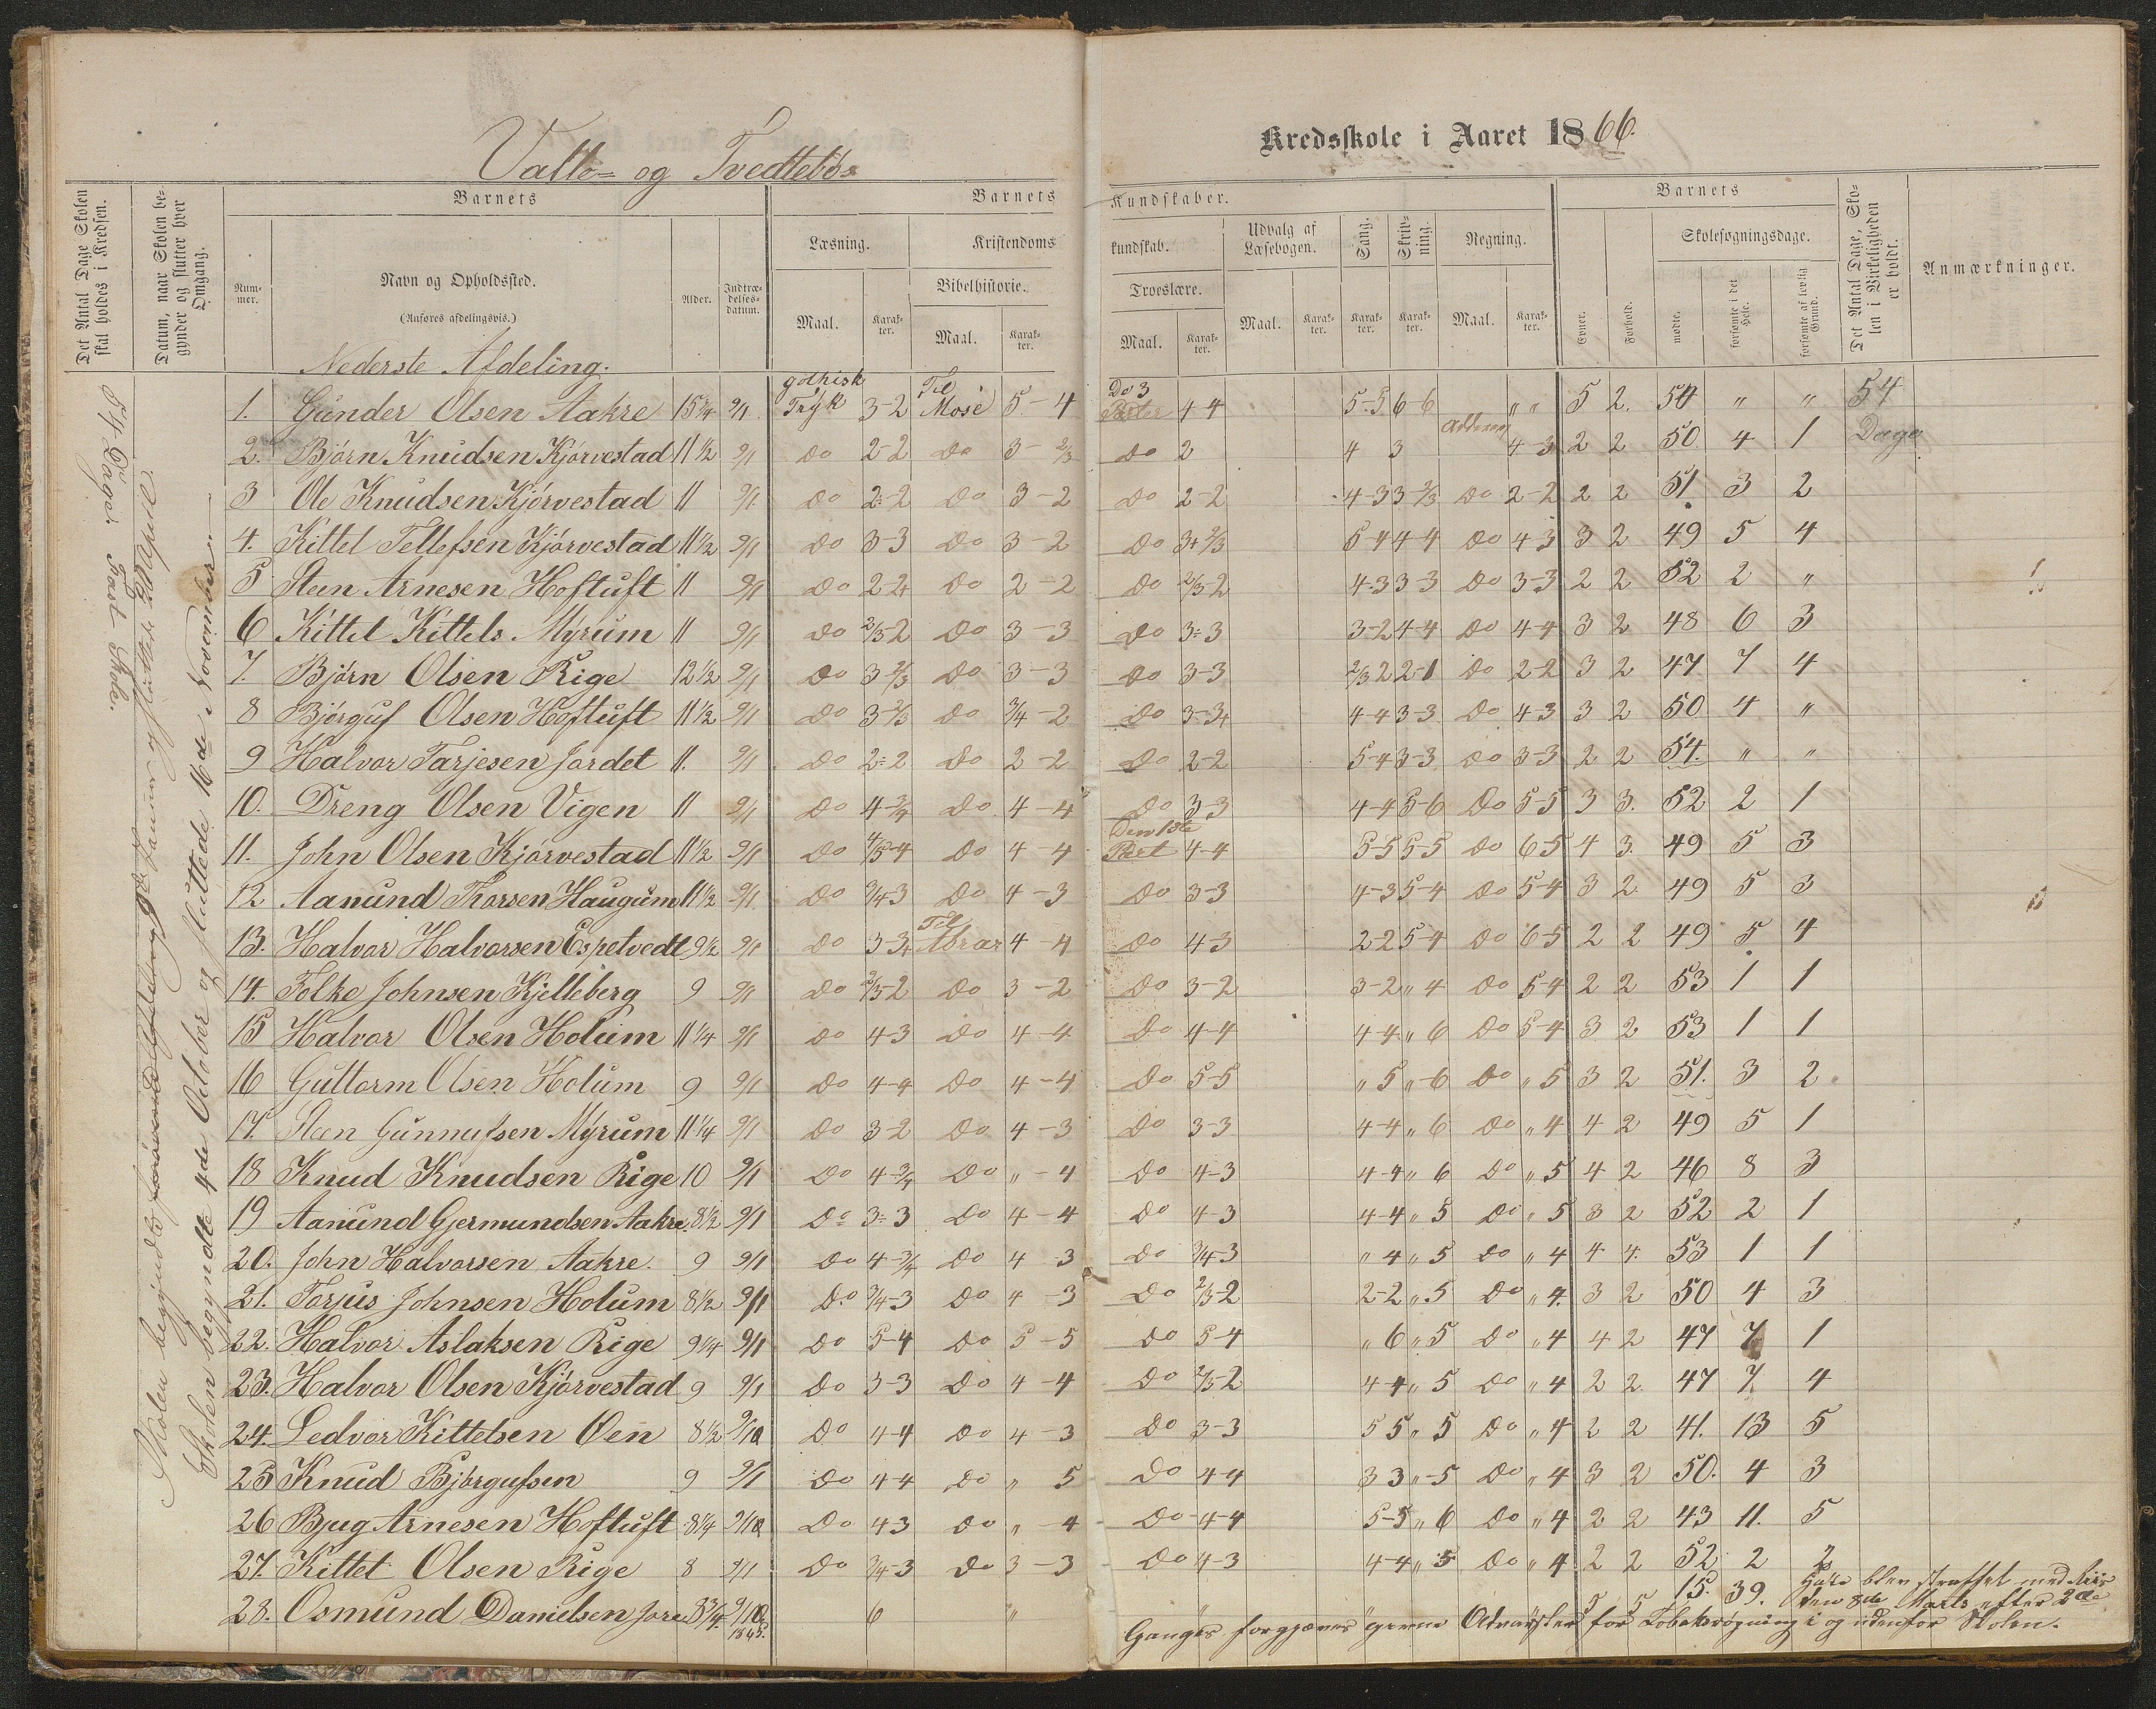 Valle- og Tvedtebøs
Kredsskole i Aaret 1866.
Det Antal Dage Skolen skal holdes i Kredsen.
Datum, naar Skolen begynder og slutter hver Omgang.
Barnets
Num-mer.
Navn og Opholdssted.
(Anføres afdelingsvis.)
Alder.
Indtræ-delses-datum.
Barnets Kundskaber.
Læsning.
Kristendomskundskab.
Bibelhistorie.
Troeslære.
Udvalg af Læsebogen.
Sang.
Skrivning.
Regning.
Maal. Karakter. Maal. Karakter. Maal. Karakter. Maal. Karakter. Karakter. Karakter. Maal. Karakter.
Barnets
Evner.
Forhold.
Skolesøgningsdage.
mødte.
forsømte i det Hele.
forsømte af lovlig Grund.
Det Antal Dage, Skolen i Virkeligheden er holdt.
Anmærkninger.
54 Dages Fast Skole.
Skolen begyndte 4de October og sluttede 16de November
Nederste Afdeling.
1. Gunder Olsen Aakre 15 3/4 9/1 gothisk Tryk 3-2 Til Mose 5-4 Do 3 4-4 5-5 6-6 " " 5 2. 54 " " 54
2. Bjørn Knudsen Kjørvestad 11 1/2 9/1 do 2-2 do 3-2/3 do 2 4 3 4-3 2 2 50 4 1 Dage
3 Ole Knudsen Kjørvestad 11 9/1 do 2-2 do 3-2 do 2-2 4-3 3-2/3 do 2-2 2 2 51 3 2
4. Kittel Tellefsen Kjørvestad 11 1/2 9/1 do 3-3 do 3-2 do 3+2/3 5-4 4-4 do 4 3 3 2 49 5 4
5 Steen Arnesen Hoftuft 11 9/1 do 2-2 do 2-2 do 2/3-2 4-3 3-3 do 3-3 2 2 52 2 "
6 Kittel Kittels. Myrum 11 9/1 do 2/3-2 do 3-3 do 3-3 3-2 4-4 do 4-4 3 2 48 6 3
7. Bjørn Olsen Rige 12 1/2 9/1 do 3-2/3 do 3-3 do 3-3 2/3 2 2-1 do 2-2 3 2 47 7 4
8 Bjørguf Olsen Hoftuft 11 1/2 9/1 do 3-2/3 do 3/4-2 do 3-3+ 4-4 3-3 do 4-3 3 2 50 4 "
9 Halvor Tarjesen Jordet 11. 9/1 do 2-2 do 2-2 do 2-2 5-4 3-3 do 3-3 2 2 54. " "
10. Dreng Olsen Vigen 11 9/1 do 4-3/4 do 4-4 do 3-3 4-4 5-6 do 5-5 3 3. 52 2 1
11. John Olsen Kjørvestad 11 1/2 9/1 do 4/5-4 do 4-4 Den 1ste 4-4 5-5 5-5 do 6-5 4 3. 49 5 3
12 Aanund Thorsen Haugum 11 1/2 9/1 do 3/4-3 do 4-3 do 3-3 4-3 5-4 do 5-4 3 2 49 5 3
13. Halvor Halvorsen Espetvedt 9 1/2 9/1 do 3-3+ Til Abrar 4-4 do 4-3 2-2 5-4 do 6-5 2 2 49 5 4
14. Folke Johnsen Kjelleberg 9 9/1 do 2/3-2 do 3-2 do 3-2 3-2 " 4 do 5-4 2 2 53 1 1
15 Halvor Olsen Holum 11 1/4 9/1 do 4-3 do 4-4 do 4-4 4-4 " 6 do 5-4 3 2 53 1 1
16 Guttorm Olsen Holum 9 9/1 do 4-4 do 4-4 do 5-5 " 5 "-6 do " 5 3 2 51. 3 2
17. Steen Gunnufsen Myrum 11 1/4 9/1 do 3-2 do 4-3 do 3-3 4-4 " 6 do " 4 4 2 49 5 1
18 Knud Knudsen Rige 10 9/1 do 4-3/4 do "-4 do 4-3 4-4 " 6 do " 5 4 2 46 8 3
19 Aanund Gjermundsen Aakre 8 1/2 9/1 do 3-3 do 4-4 do 4-3 4-4 " 5 do " 5 3 2 52 2 1
20. John Halvorsen Aakre. 9 9/1 do 4-3/4 do 4 3 do 3/4-3 " 4 " 5 do " 4 4 4. 53 1 1
21. Torjus Johnsen Holum 8 1/2 9/1 do 3/4-3 do 4-3 do 2/3-2 2-2 " 5 do " 4. 3 2 50 4 3
22. Halvor Aslaksen Rige 9 1/4 9/1 do 5-4 do 5-5 do 5-4 " 6 " 5 do " 4 4 2 47 7 1
23. Halvor Olsen Kjørvestad 9 9/1 do 3-3 do 4-4 do 2/3-2 4-4 " 5 do " 4 2 2 47 7 4
24. Ledvor Kittelsen Øen 8 1/2 9/10 do 4-4 do 4-3 do 3-3 5 5 " 5 do " 4 2 2 41. 13 5
25 Knud Bjørgufsen 9 9/1 do 4-4 do " 5 do 4-4 3 3 "-5 do " 4 3 2 50. 4 3
26 Bjug Arnesen Hoftuft 8 1/4 9/10 do 4 3 do "-4 do 4-4 5-5 " 6 do " 4 2 2 43 11. 5
27. Kittel Olsen Rige 8 9/1 do 3/4-3 do 3-3 do 4-3 4-4 " 5 do " 4 2 2 52 2 2
28. Osmund Danielsen Jore 8 3/4 9/10 1865. 6 " " " 5 5 15. 39. blev straffet med Riis
den 8de Marts efter 2de
Ganges forgjæves givne Advarsler for Tobaksrøgning i og udenfor Skolen.